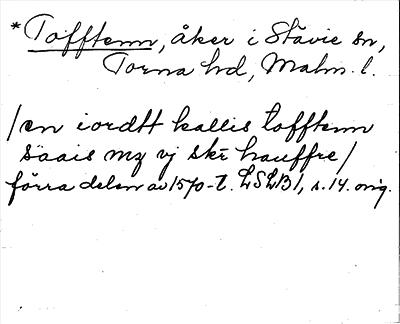 *Tofftenn, åker i Stävie sn,
Torna hd, Malm. l.
/en iordtt kallis tofftenn
såais mz vj skr hauffre/
förra delen av 1570-t. LSLB 1, s. 14. orig.